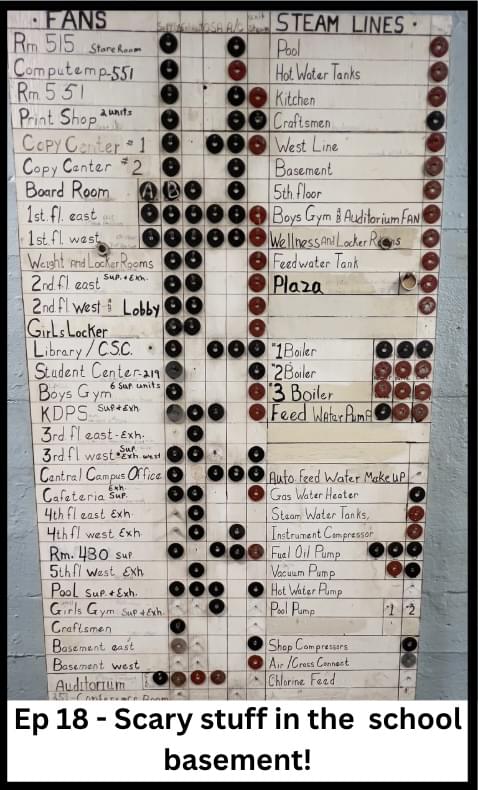 · FANS
OSA A/C
Rm 515 Store Room
Computemp-551
Rm 551
Print Shop 2 units
Copy Center #1
Copy Center #2
Board Room A B
1st. fl. east
1st. fl. west
Weight And Locker Rooms
2nd fl east Sup. + Exh.
2nd fl west & Lobby
Girls Locker
Library / C.S.C.
Student Center-219
Boys Gym 6 Sup. units
KDPS Sup + Exh
3rd fl east-Exh.
3rd fl west Sup + Exh. west
Central Campus Office
Cafeteria Exh. Sup.
4th fl east Exh.
4th fl west Exh.
Rm. 480 Sup
5th fl west Exh
Pool Sup. + Exh.
Girls Gym Sup + Exh.
Craftsmen
Basement east
Basement west
Auditorium
Conference Room
STEAM LINES ·
Pool
Hot Water Tanks
Kitchen
Craftsmen
West Line
Basement
5th floor
Boys Gym & Auditorium FAN
Wellness And Locker Rooms
Feedwater Tank
Plaza
#1 Boiler
#2 Boiler
#3 Boiler
Feed Water Pump
Auto Feed Water Make up
Gas Water Heater
Steam Water Tanks,
Instrument Compressor
Fuel Oil Pump
Vacuum Pump
Hot Water Pump
Pool Pump #1 #2
Shop Compressors
Air / Cross Connect
Chlorine Feed
Ep 18 - Scary stuff in the school
basement!